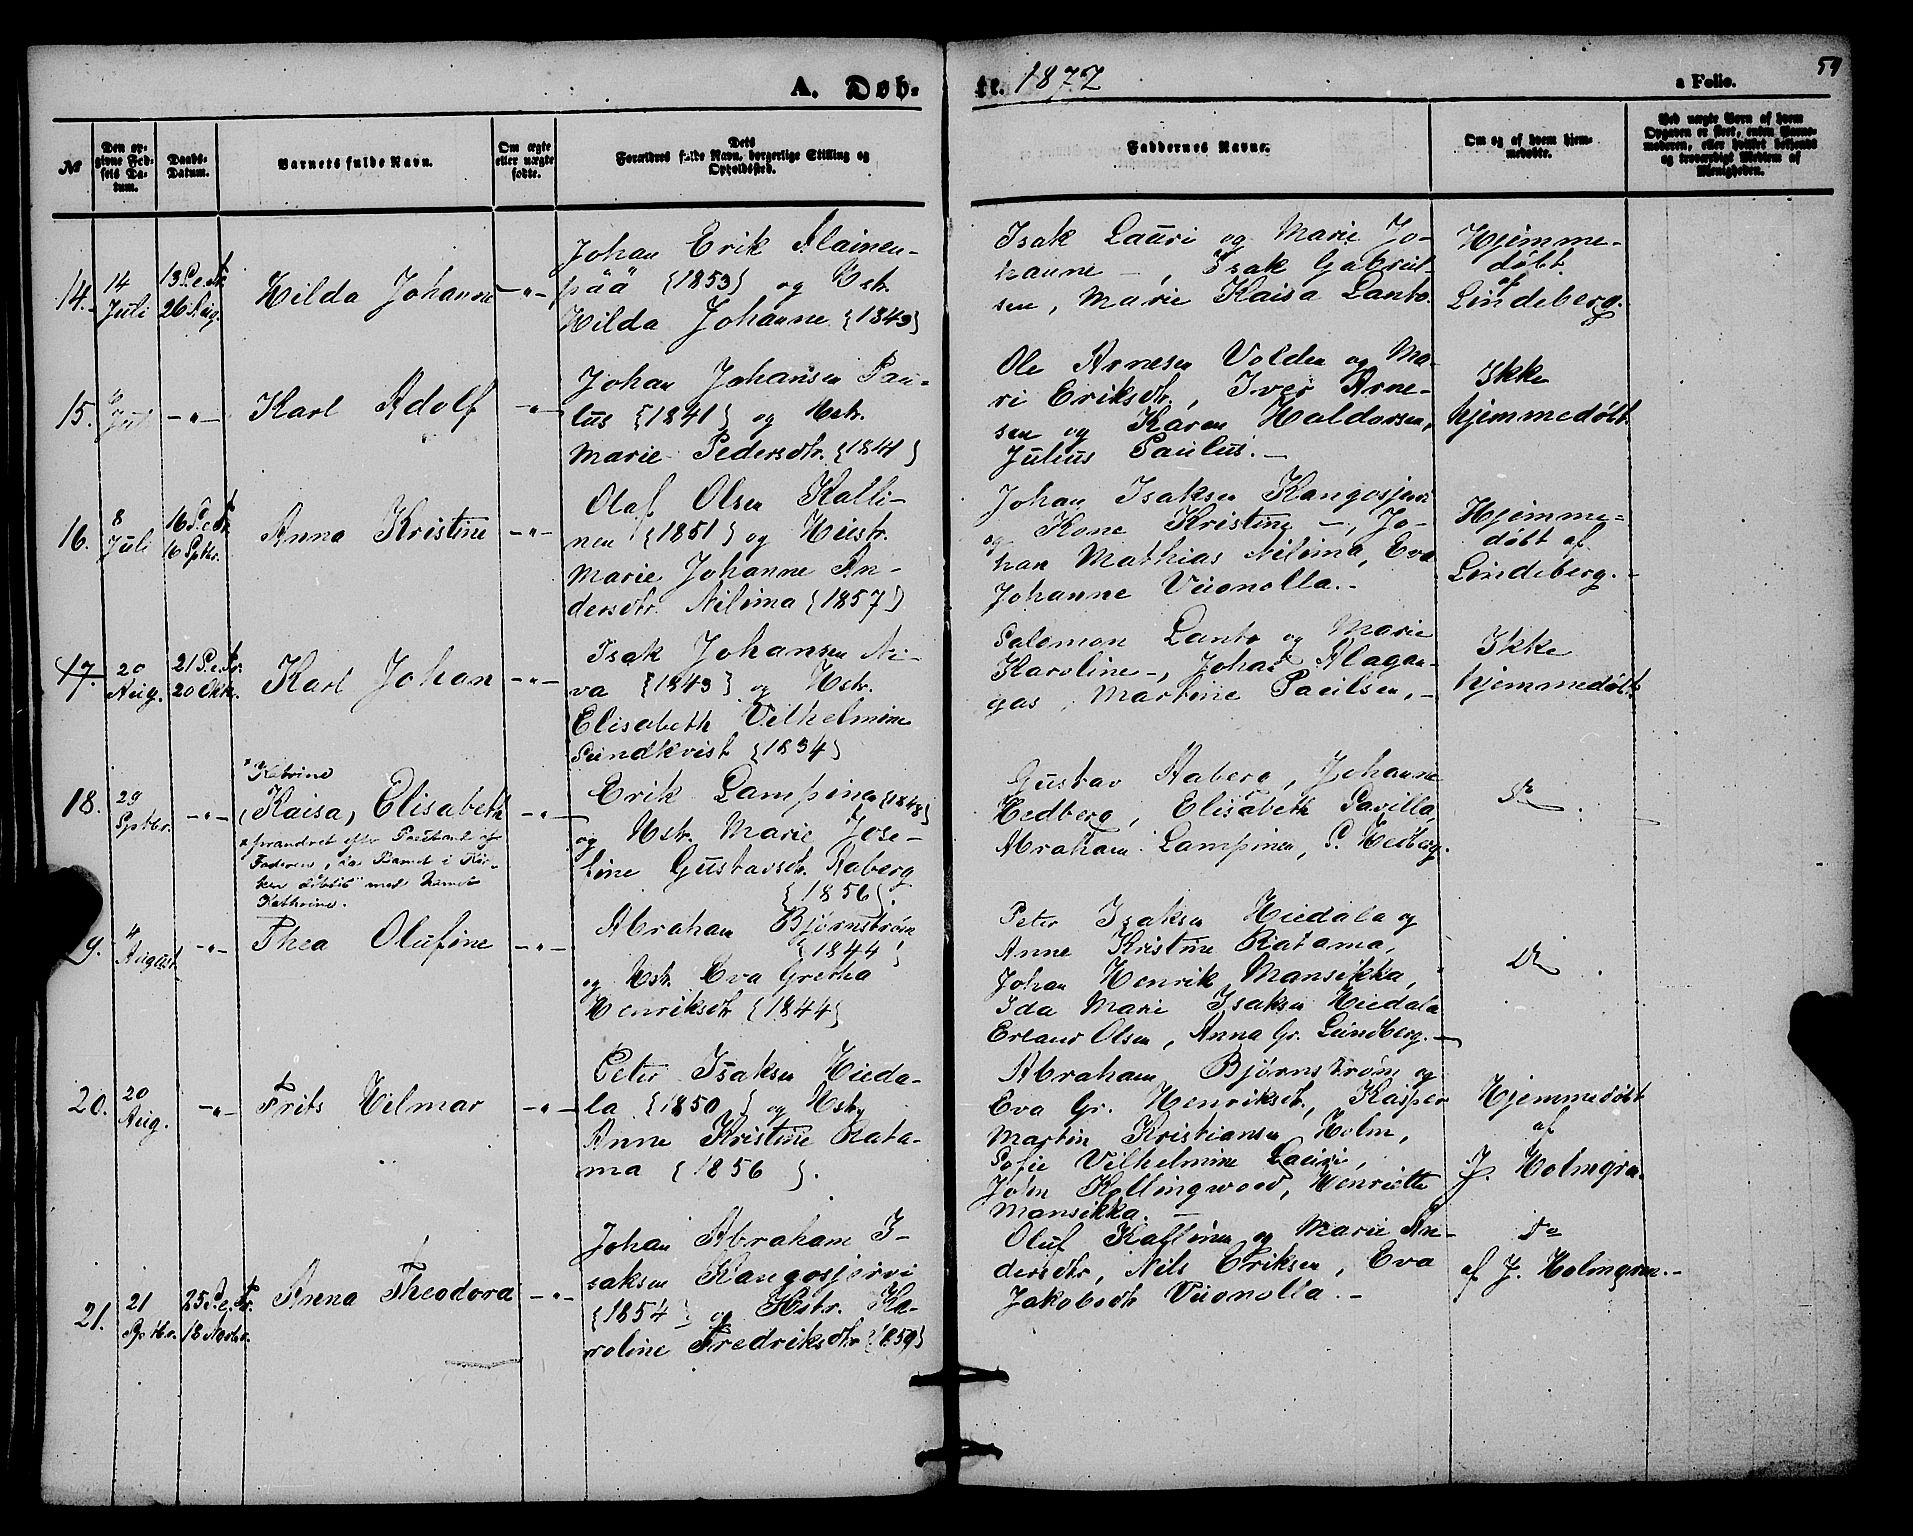 A. Døb-
te. 1877
a Folio.
№
Den opgivne Fødsels Datum.
Daabs-Datum.
Barnets fulde Navn.
Om ægte eller uægte fødte.
Dets Forældres fulde Navn, borgerlige Stilling og Opholdssted.
Faddernes Navne.
Om og af hvem hjemmedøbte.
Ved uægte Børn af hvem Opgaven er skeet, enten Barnemoderen, eller hvilket bekjendt og troværdigt Medlem af Menigheden.
14.
14 Juli
26 Aug.
Hilda Johanne
-"-
Johan Erik Alainen-
pää {1853} og Hstr.
Hilda Johanne {1849}
Isak Lauri og Marie Jo-
hanne -, Isak Gabriel-
sen, Marie Kaisa Lanto.
Hjemme-
døbt
af
Lindeberg.
15.
Juli
-"-
Karl Adolf
-"-
Johan Johansen Pau-
lus {1841} og Hstr.
Marie Pedersdtr. {1841}
Ole Arnesen Volden og Ma-
ri Eriksdtr., Iver Arne-
sen og Karen Haldorsen,
Julius Paulus. -
Ikke
hjemmedøbt
16.
8 Juli
16 Sptbr.
Anna Kristine
-"-
Olaf Olsen Kalli-
nen {1851} og Hustr.
Marie Johanne An-
dersdtr. Nilima {1857}
Johan Isaksen Kangosjervi
og Kone Kristine -, Jo-
han Mathias Nilima, Eva
Johanne Vuonolla. -
Hjemme-
døbt af
Lindeberg. -
17.
20 Aug.
20 Oktr.
Karl Johan
-"-
Isak Johansen Ni-
va {1843} og Hstr.
Elisabeth Vilhelmine
Sundkvist {1834}
Salomon Lanto og Marie
Karoline -, Johan Alagan-
gas, Martine Paulsen, -
Ikke
hjemmedøbt
18.
29 Sptbr.
-"-
x Katrine
(Kaisa) Elisabeth
-"-
Faderen, da Barnet i Kir-
ken døbtes med Navnet
Kathrine.
Erik Lampinen {1848}
og Hstr. Marie Jose-
fine Gustavsdtr. Aaberg
{1856}.
Gustav Aaberg, Johanne
Hedberg, Elisabeth Savilla,
Abraham Lampinen, P. Hedberg.
do
19.
4 August
-"-
Thea Olufine
-"-
Abraham Bjørnstrøm
{1844}
og Hst. Eva Gretha
Henriksdtr {1844}
Peter Isaksen Hiedala og
Anne Kristine Ratama,
Johan Henrik Mansikka,
Ida Marie Isaksen Hiedala
Erland Olsen, Anna Gr. Lundberg. -
do
20.
20 Aug.
-"-
Frits Hilmar
-"-
Peter Isaksen Hieda-
la {1850} og Hstr.
Anne Kristine Rata-
ma {1856}.
Abraham Bjørnstrøm og
Eva Gr. Henriksdtr, Kasper
Martin Kristiansen Holm,
Sofie Vilhelmine Lauri,
John Kollingwood, Henriette
Mansikka. -
Hjemmedøbt
af
J. Holmgren.
21.
21 Sptbr.
18 Novbr.
Anna Theodora
-"-
Johan Abraham I-
saksen Kangosjervi
{1854} og Hstr. Ka-
roline Fredriksdtr {1859}
Oluf Kallinen og Marie An-
dersdtr, Nils Eriksen, Eva
Jakobsdtr Vuonolla. -
do
af J. Holmgren. -